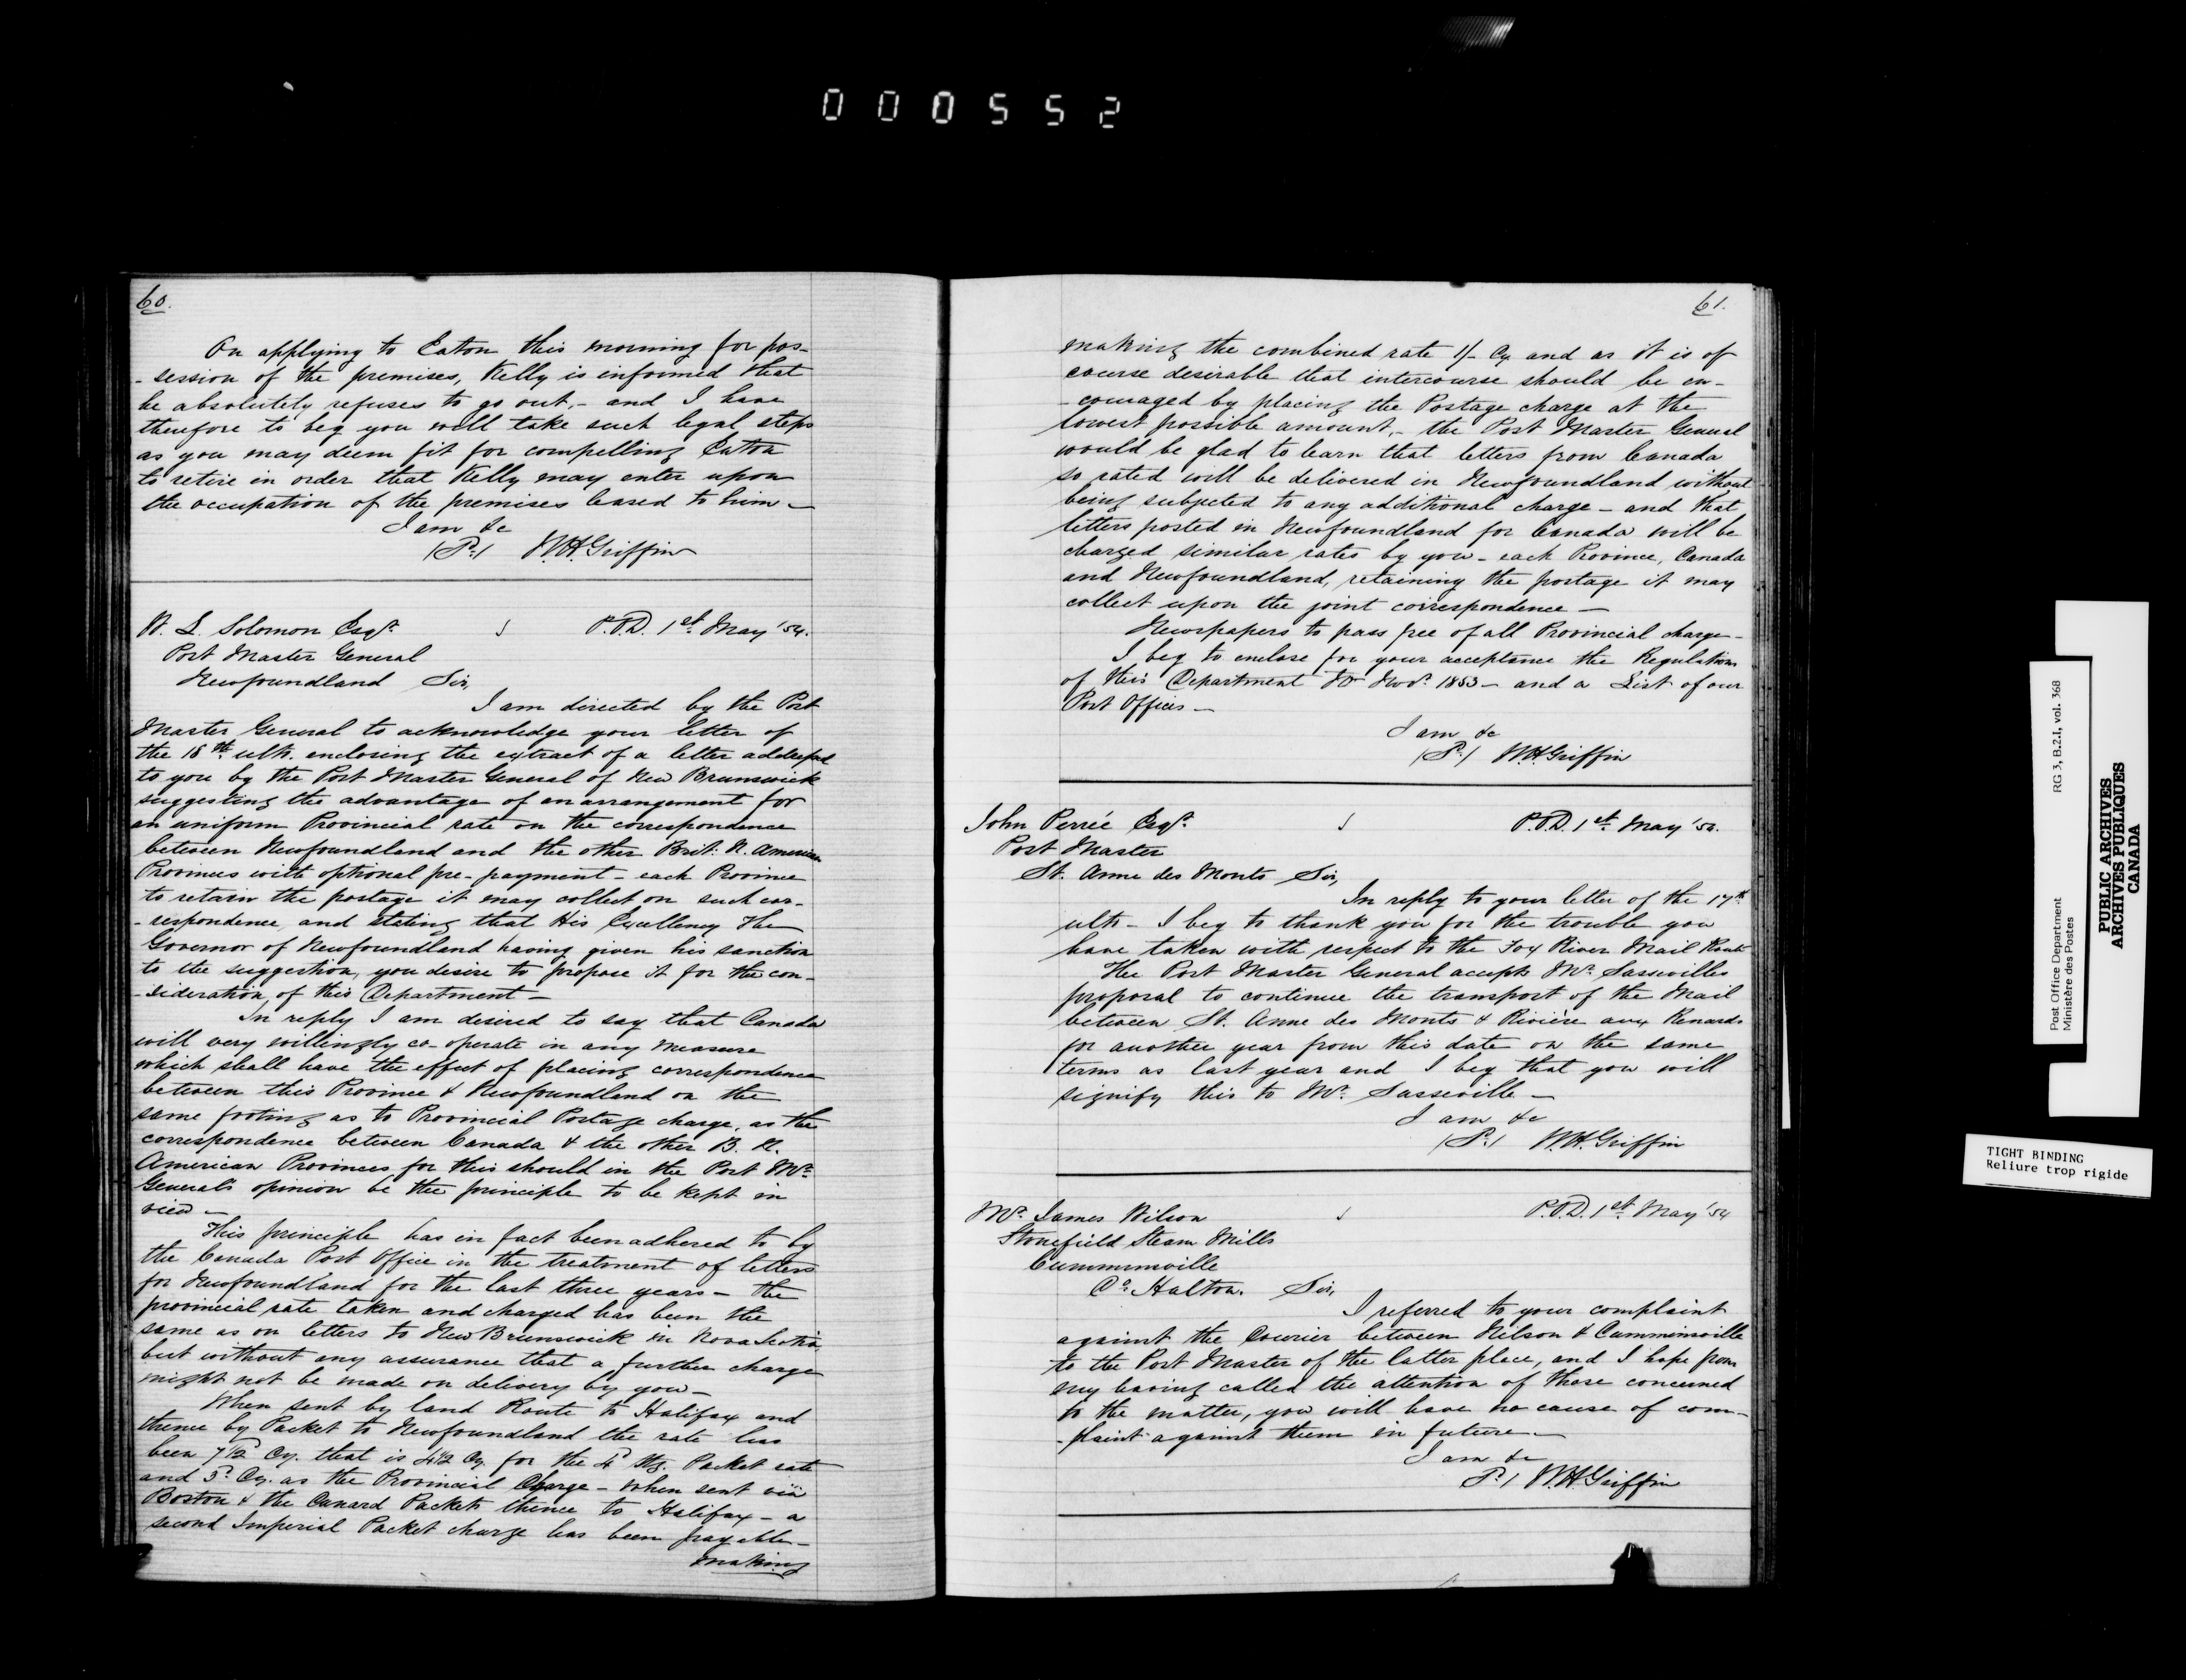 000552
60.
On applying to Eaton this morning for pos-
-session of the premises, Kelly is informed that
he absolutely refuses to go out,- and I have
therefore to beg you will take such legal steps
as you may deem fit for compelling Eaton
to retire in order that Kelly may enter upon
the occupation of the premises leased to him -
I am &c
W.H. Griffin
W. L. Solomon Esqr.
P.O.D. 1st May '54.
Post Master General
Newfoundland Sir,
I am directed by the Post
Master General to acknowledge your letter of
the 18th ulto. enclosing the extract of a letter addressed
to you by the Post Master General of New Brunswick
suggesting the advantage of an arrangement for
an uniform Provincial rate on the correspondence
between Newfoundland and the other Brit: N. American
Provinces with optional pre-payment - each Province
to retain the postage it may collect on such cor-
-respondence, and stating that His Excellency The
Governor of Newfoundland having given his sanction
to the suggestion, you desire to propose it for the con-
-sideration of this Department -
In reply I am desired to say that Canada
will very willingly co-operate in any measure
which shall have the effect of placing correspondence
between this Province & Newfoundland on the
same footing as to Provincial Postage charge, as the
correspondence between Canada & the other B. N.
American Provinces for this should in the Post Mr.
General's opinion be the principle to be kept in
view -
This principle has in fact been adhered to by
the Canada Post Office in the treatment of letters
for Newfoundland for the last three years - the
provincial rate taken and charged has been the
same as on letters to New Brunswick in Nova Scotia
but without any assurance that a further charge
might not be made on delivery by you -
When sent by land Route to Halifax and
thence by Packet to Newfoundland the rate has
been 7½d Cy. that is 4½ Cy. for the 4d Stg. Packet rate
and 3d. Cy. as the Provincial Charge - When sent viâ
Boston & the Cunard Packets thence to Halifax - a
second Imperial Packet charge has been payable -
making
61.
making the combined rate 1/- Cy and as it is of
course desirable that intercourse should be en-
-couraged by placing the Postage charge at the
lowest possible amount,- the Post Master General
would be glad to learn that letters from Canada
so rated will be delivered in Newfoundland without
being subjected to any additional charge - and that
letters posted in Newfoundland for Canada will be
charged similar rates by you - each Province, Canada
and Newfoundland, retaining the postage it may
collect upon the joint correspondence -
Newspapers to pass free of all Provincial charge -
I beg to enclose for your acceptance the Regulations
of this Department Novr. 1853 - and a List of our
Post Offices -
I am &c
W.H. Griffin
John Perrée Esqr.
P.O.D. 1st May '54.
Post Master
St. Anne des Monts Sir,
In reply to your letter of the 17th
ulto - I beg to thank you for the trouble you
have taken with respect to the Fox River Mail Route
The Post Master General accepts Mr. Sassevilles
proposal to continue the transport of the Mail
between St. Anne des Monts & Rivière aux Renards
for another year from this date on the same
terms as last year and I beg that you will
signify this to Mr. Sasseville -
I am &c
W.H. Griffin
Mr. James Wilson
P.O.D. 1st May '54
Stonefield Steam Mills
Cumminsville
Co. Halton. Sir,
I referred to your complaint
against the Courier between Nelson & Cumminsville
to the Post Master of the latter place, and I hope from
my having called the attention of those concerned
to the matter, you will have no cause of com-
-plaint against them in future -
I am &c
W.H. Griffin
Post Office Department RG 3, B.2.I, vol. 368
Ministère des Postes
PUBLIC ARCHIVES
ARCHIVES PUBLIQUES
CANADA
TIGHT BINDING
Reliure trop rigide